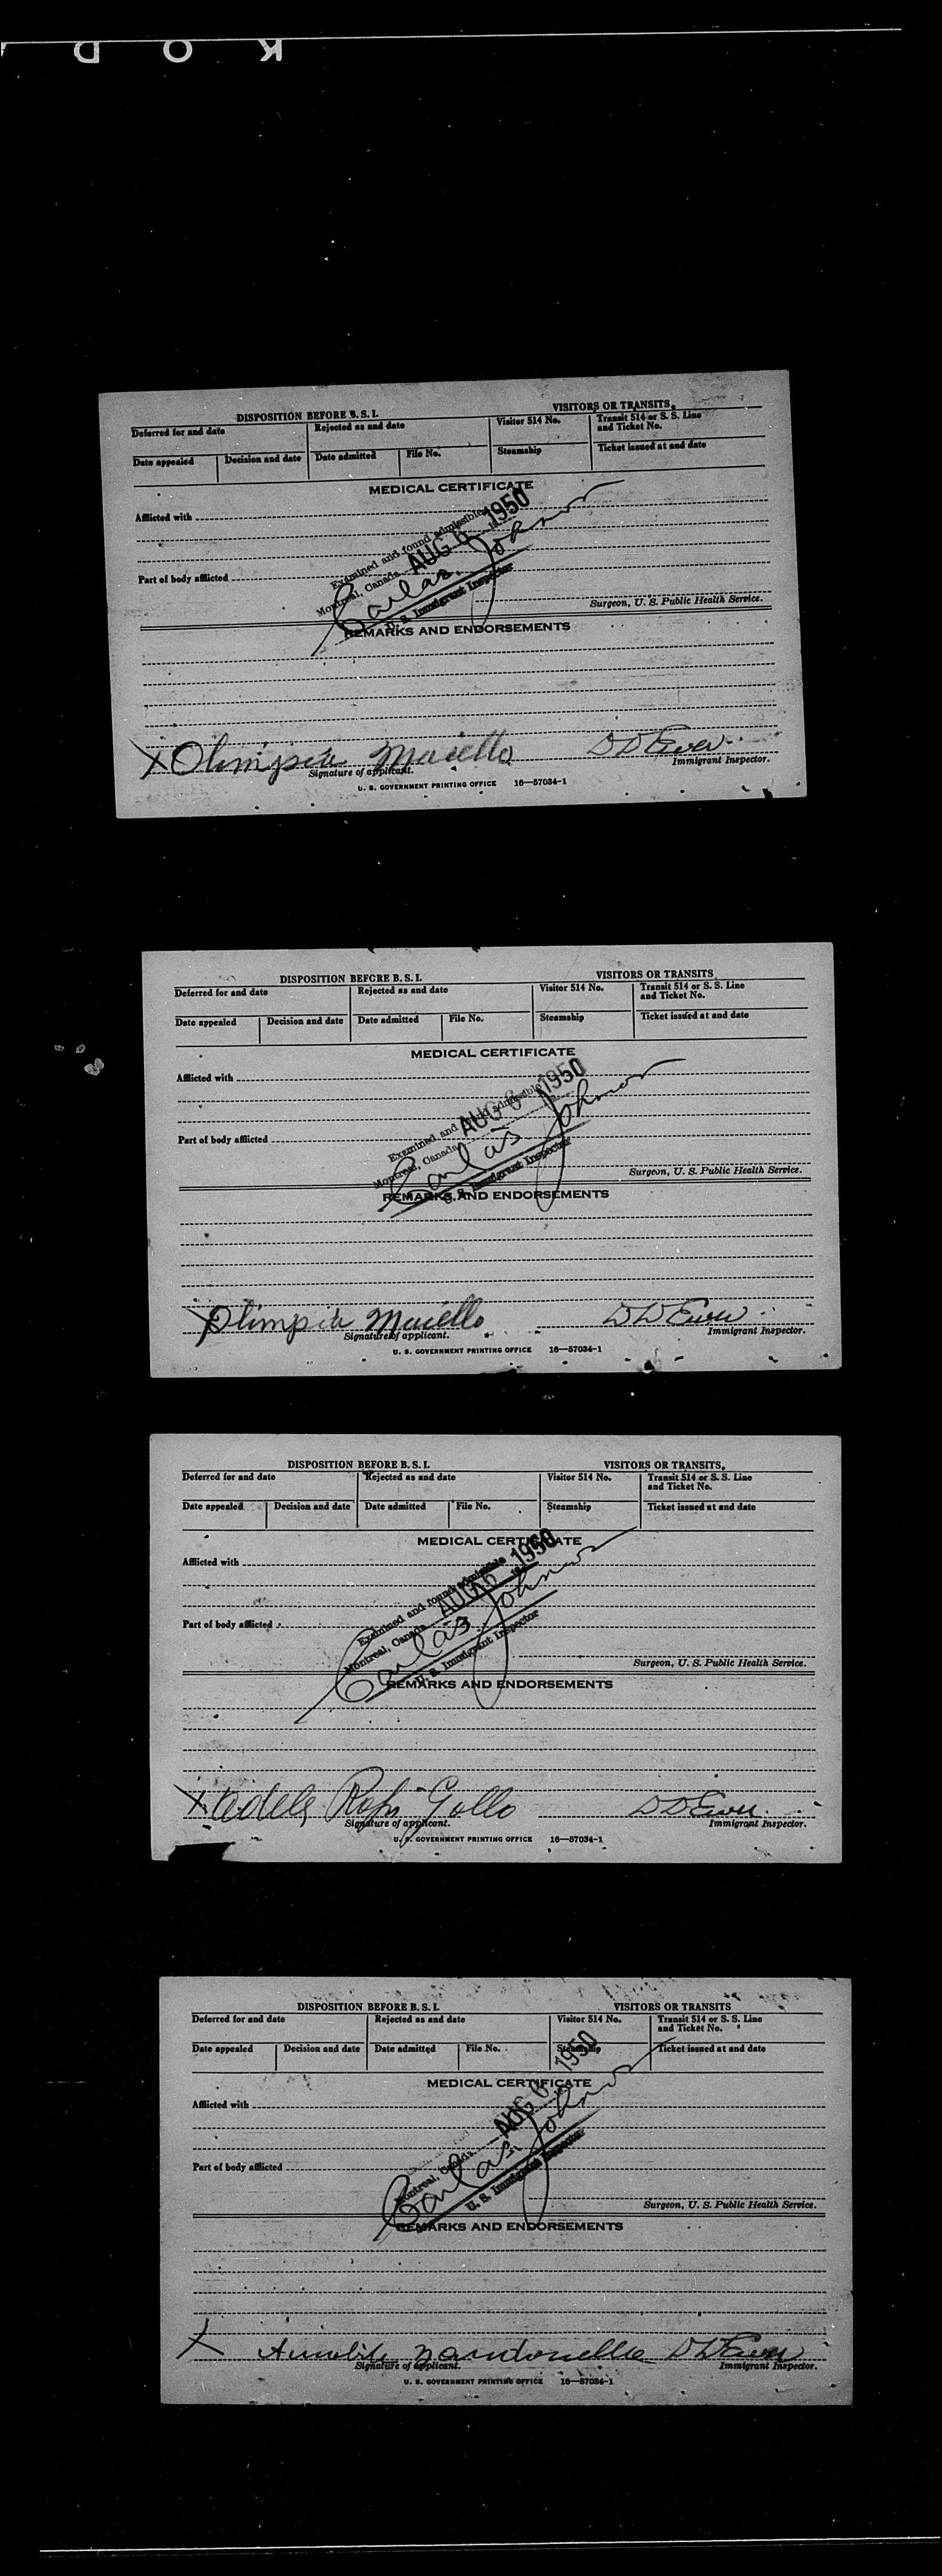 K O D
DISPOSITION BEFORE B. S. I. VISITORS OR TRANSITS.
Deferred for and date Rejected as and date Visitor 514 No. Transit 514 or S. S. Line and Ticket No.
Date appealed Decision and date Date admitted File No. Steamship Ticket issued at and date
MEDICAL CERTIFICATE
Afflicted with
Examined and found admissible
AUG 6 1950
Montreal, Canada
Part of body afflicted
U. S. Immigrant Inspector
Surgeon, U. S. Public Health Service.
REMARKS AND ENDORSEMENTS
X Olimpia Maiello
Signature of applicant. Immigrant Inspector.
U. S. GOVERNMENT PRINTING OFFICE 16—57034-1
DISPOSITION BEFORE B. S. I. VISITORS OR TRANSITS
Deferred for and date Rejected as and date Visitor 514 No. Transit 514 or S. S. Line and Ticket No.
Date appealed Decision and date Date admitted File No. Steamship Ticket issued at and date
MEDICAL CERTIFICATE
Afflicted with
Examined and found admissible
AUG 6 1950
Montreal, Canada
Part of body afflicted
U. S. Immigrant Inspector
Surgeon, U. S. Public Health Service.
REMARKS AND ENDORSEMENTS
X Olimpia Maiello
Signature of applicant. Immigrant Inspector.
U. S. GOVERNMENT PRINTING OFFICE 16—57034-1
DISPOSITION BEFORE B. S. I. VISITORS OR TRANSITS.
Deferred for and date Rejected as and date Visitor 514 No. Transit 514 or S. S. Line and Ticket No.
Date appealed Decision and date Date admitted File No. Steamship Ticket issued at and date
MEDICAL CERTIFICATE
Afflicted with
Examined and found admissible
AUG 6 1950
Montreal, Canada
Part of body afflicted
U. S. Immigrant Inspector
Surgeon, U. S. Public Health Service.
REMARKS AND ENDORSEMENTS
X Adele Gollo
Signature of applicant. Immigrant Inspector.
U. S. GOVERNMENT PRINTING OFFICE 16—57034-1
DISPOSITION BEFORE B. S. I. VISITORS OR TRANSITS
Deferred for and date Rejected as and date Visitor 514 No. Transit 514 or S. S. Line and Ticket No.
Date appealed Decision and date Date admitted File No. Steamship Ticket issued at and date
MEDICAL CERTIFICATE
Afflicted with
AUG 6 1950
Montreal, Canada
Part of body afflicted
U. S. Immigrant Inspector
Surgeon, U. S. Public Health Service.
REMARKS AND ENDORSEMENTS
X Amabile Zandonella
Signature of applicant. Immigrant Inspector.
U. S. GOVERNMENT PRINTING OFFICE 16—57034-1